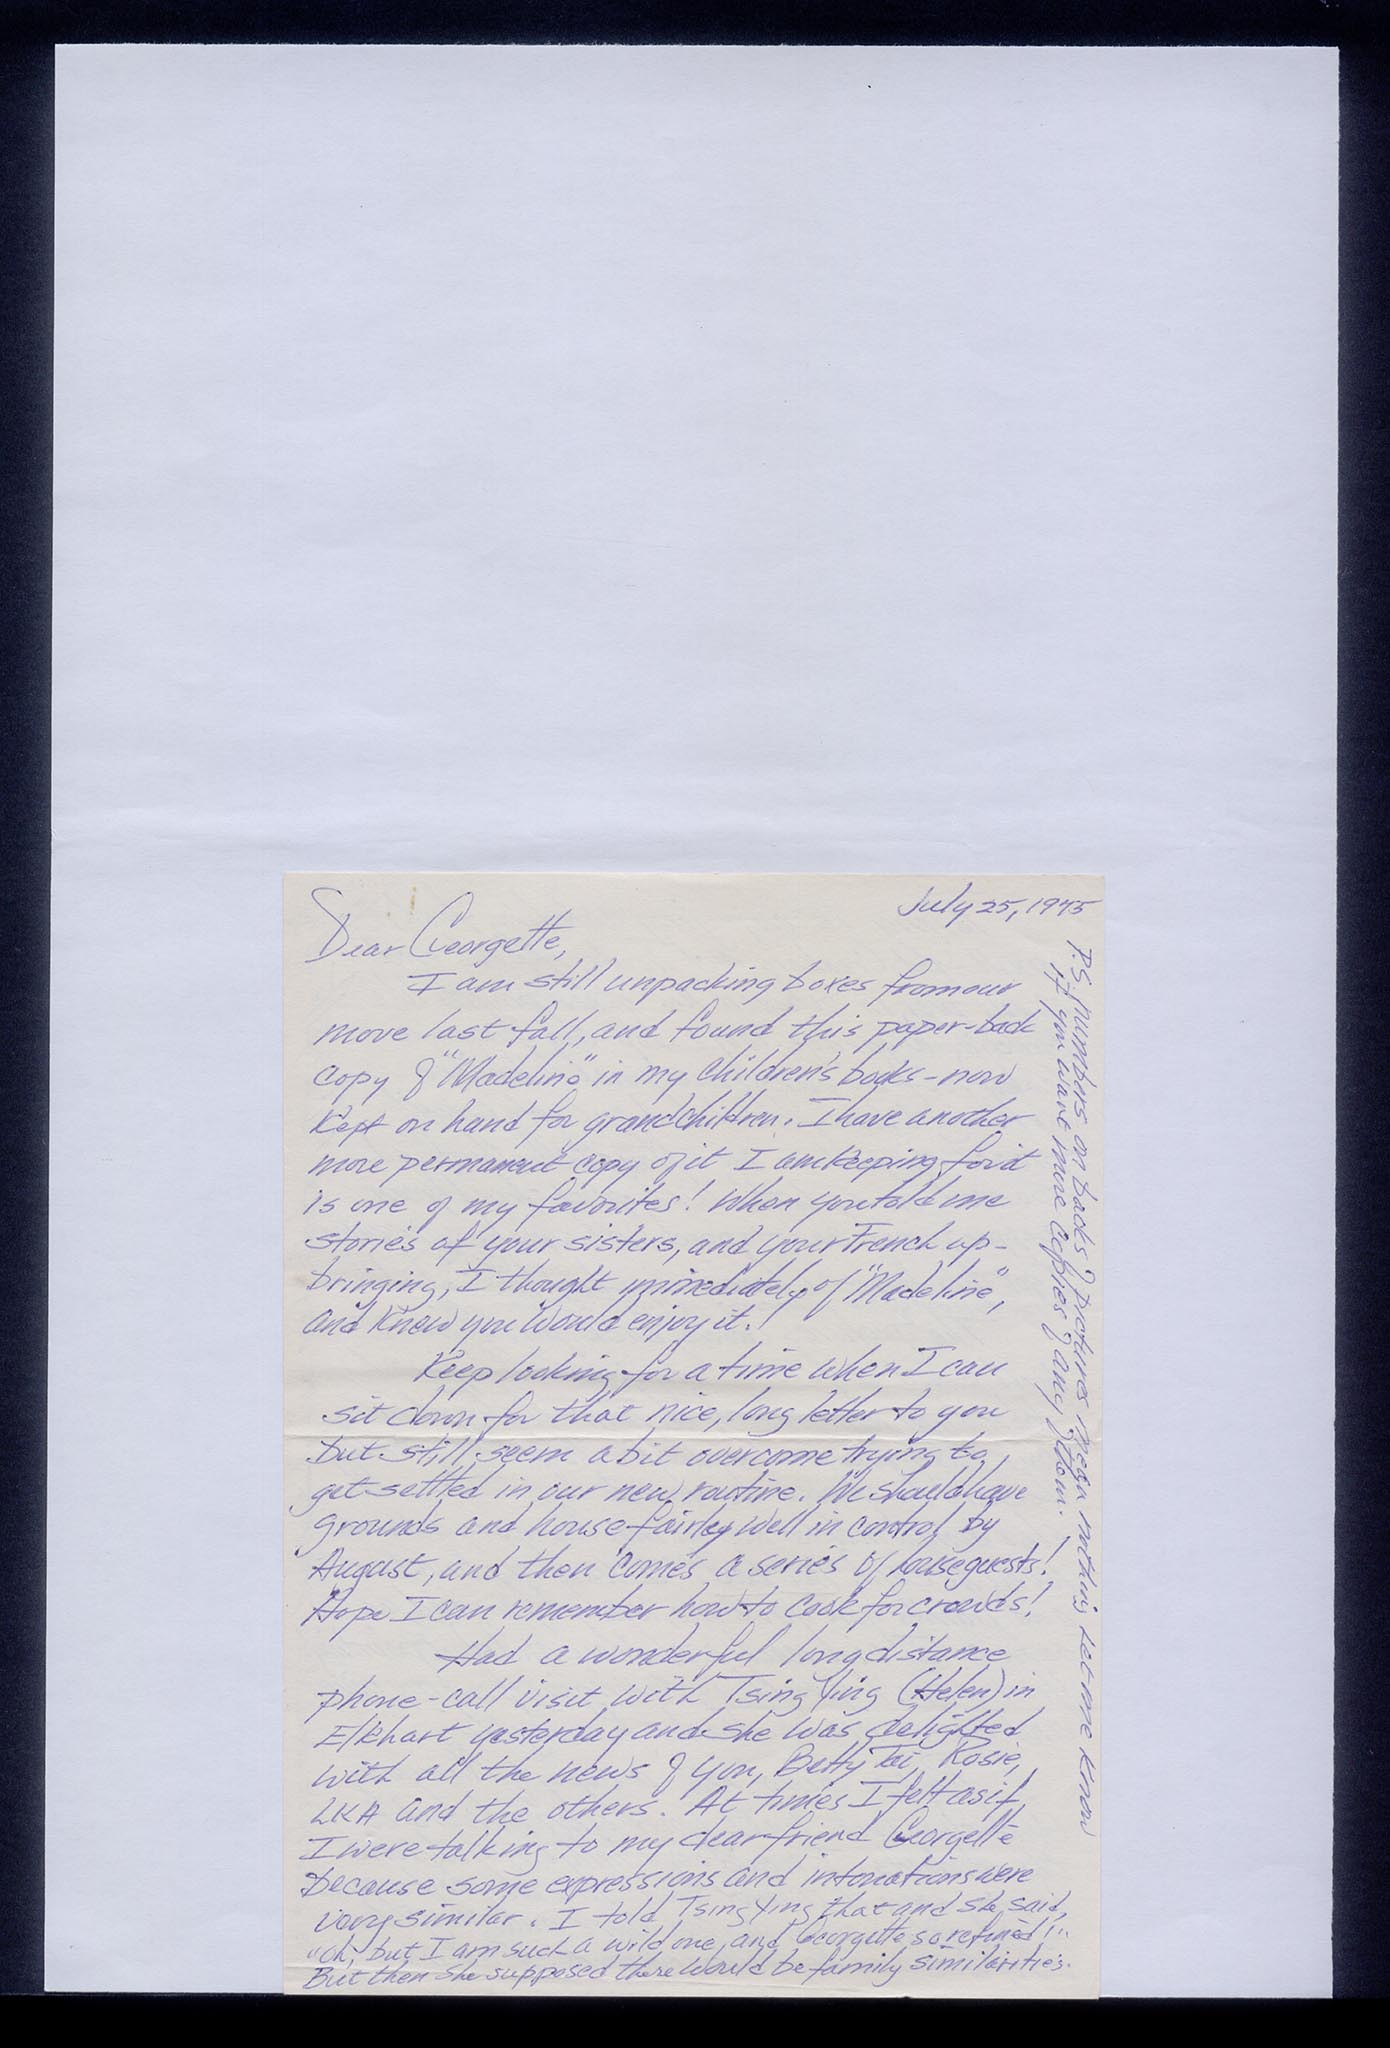 July 25, 1975
Dear Georgette,
I am still unpacking boxes from our
move last fall, and found this paper-back
copy of "Madeline" in my children's books - now
kept on hand for grandchildren. I have another
more permanent copy of it I am keeping for it
is one of my favorites! When you told me
stories of your sisters, and your French up-
bringing, I thought immediately of "Madeline",
and knew you would enjoy it!
Keep looking for a time when I can
sit down for that nice, long letter to you
but still seem a bit overcome trying to
get settled in our new routine. We should have
grounds and house fairley well in control by
August, and then comes a series of houseguests!
Hope I can remember how to cook for crowds!
Had a wonderful long distance
phone-call visit with Tsing Ying (Helen) in
Elkhart yesterday and she was delighted
with all the news of you, Betty Tai, Rosie,
LKA and the others. At times I felt as if
I were talking to my dear friend Georgette
because some expressions and intonations were
very similar. I told Tsing Ying that and she said,
"oh, but I am such a wild one, and Georgette so refined!"
But then she supposed there would be family similarities.
P.S. Numbers on backs of pictures mean nothing. Let me know
if you want more copies of any of them.